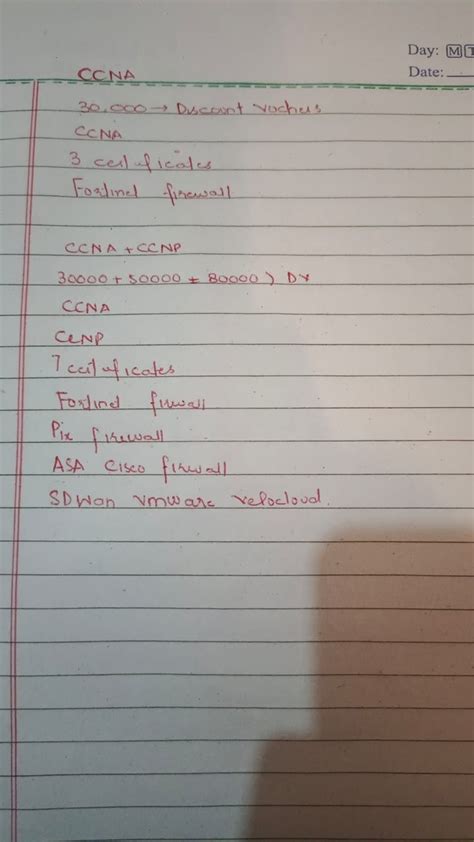 Day: M T
Date:
CCNA
30,000 → Discount Vochers
CCNA
3 certificates
Fortinet firewall
CCNA + CCNP
30000 + 50000 = 80000 ) DV
CCNA
CCNP
7 certificates
Fortinet firewall
Pix firewall
ASA Cisco firewall
SDWan vmware velocloud.